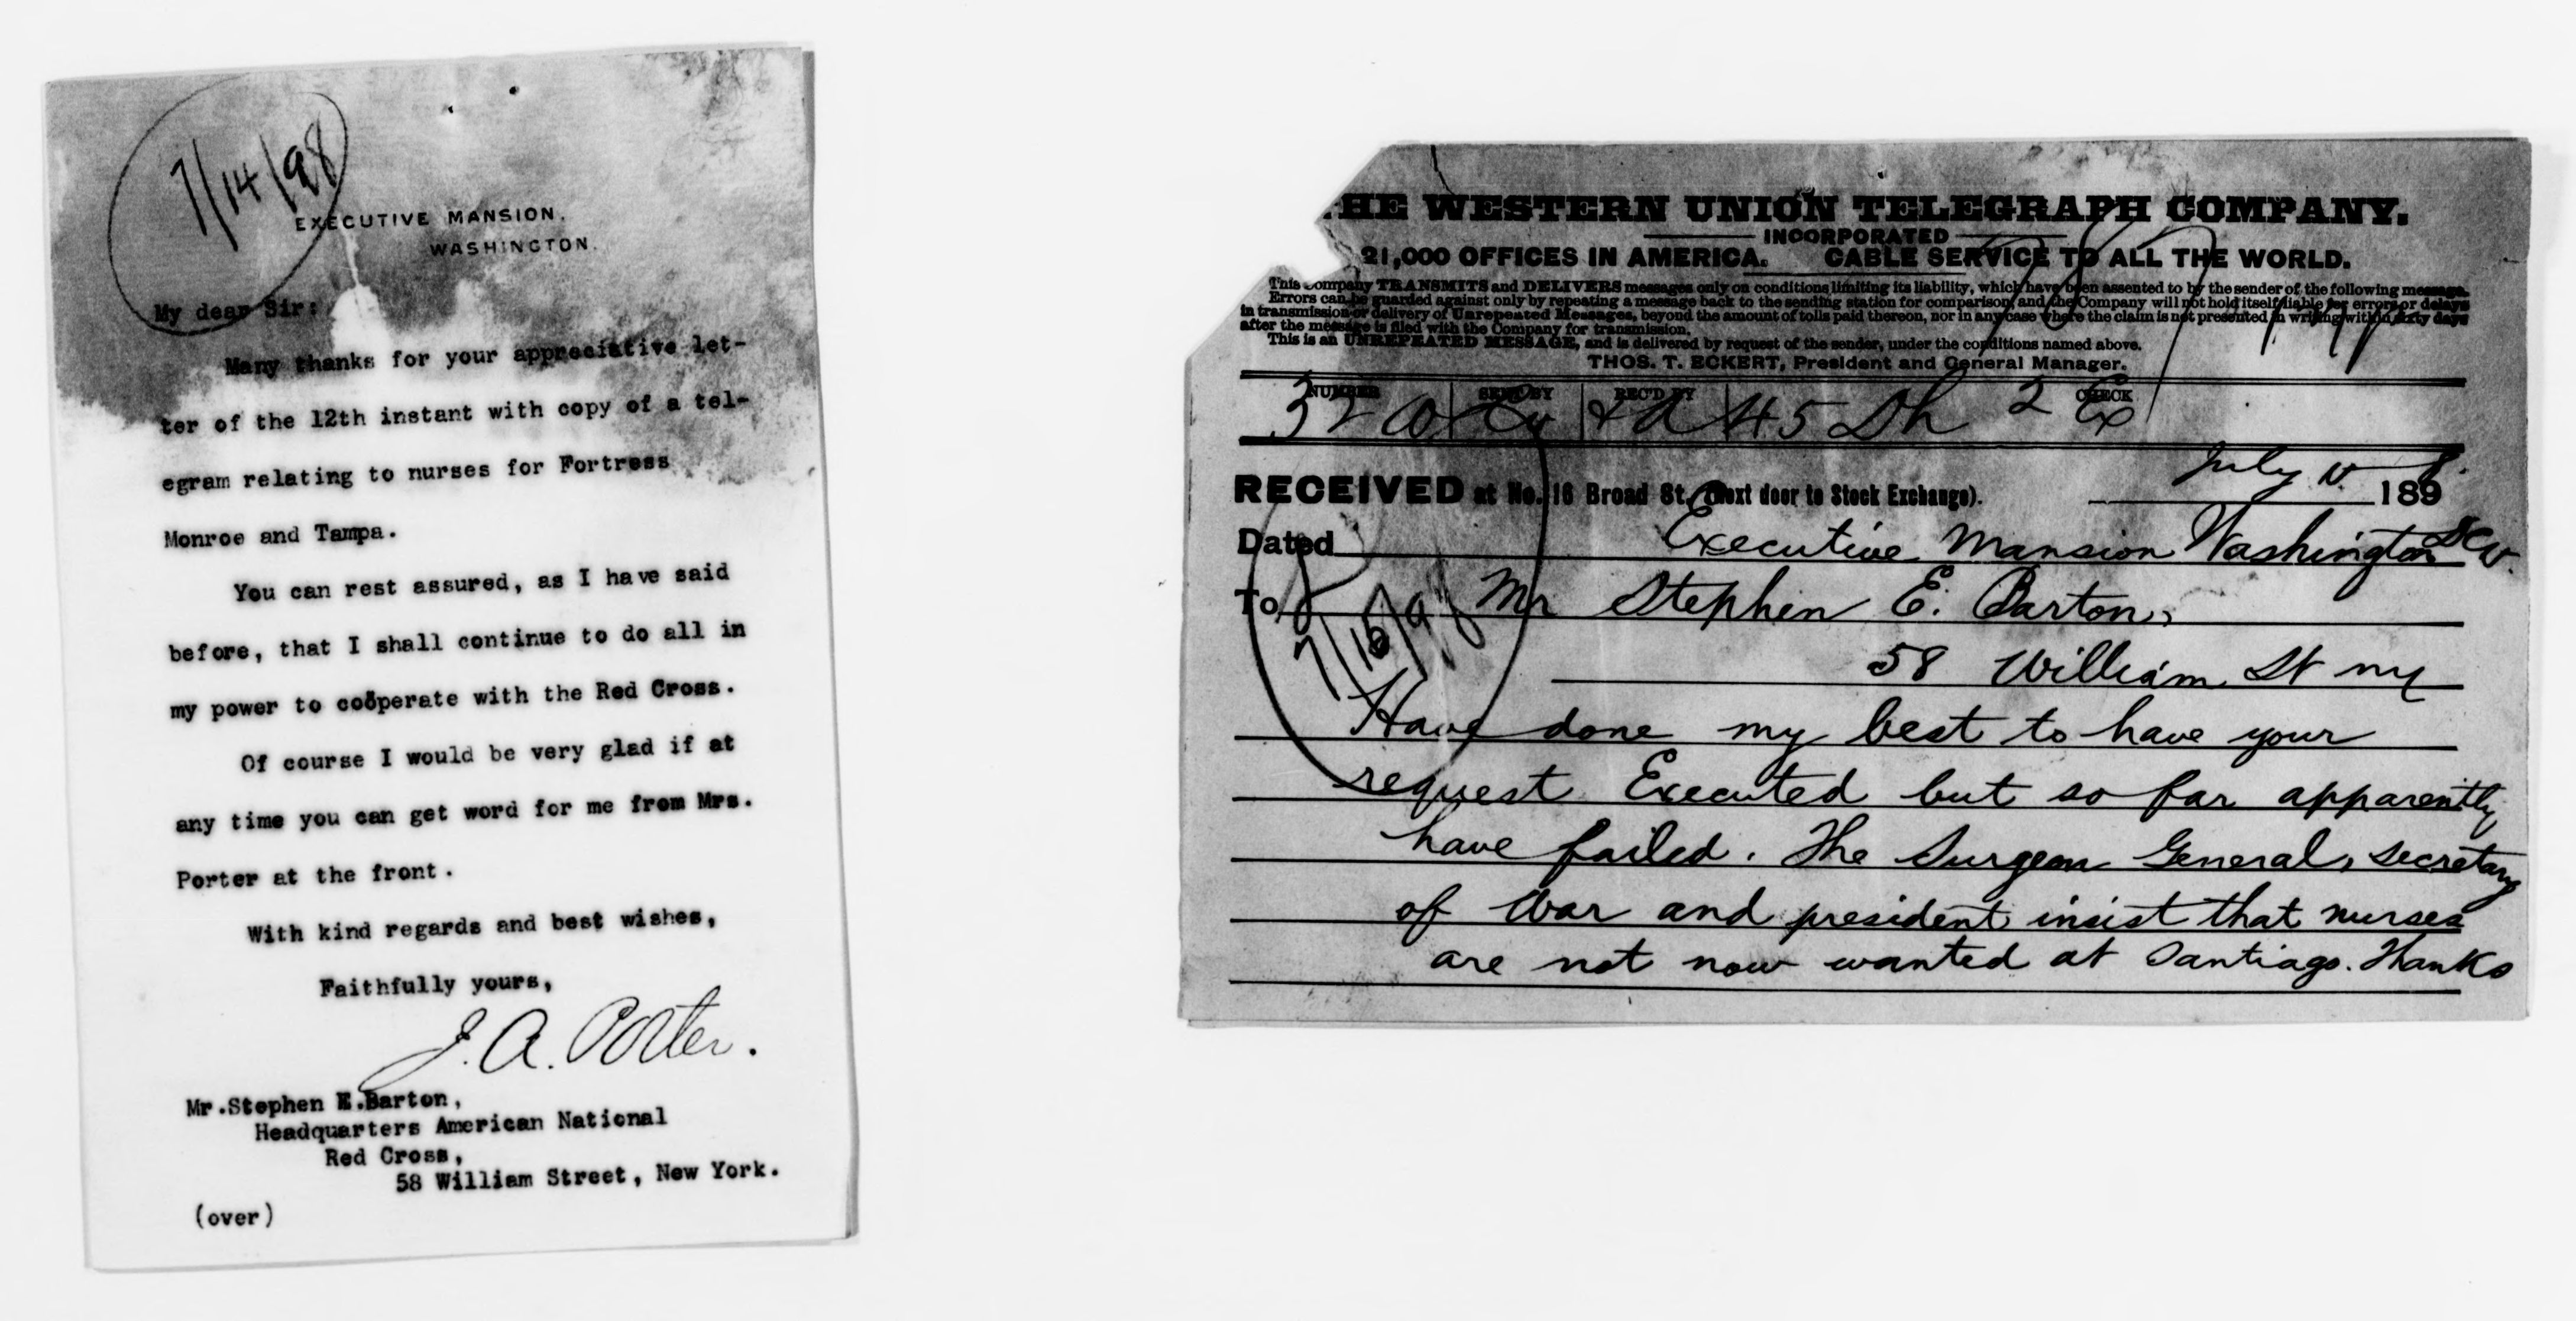 7/14/98
EXECUTIVE MANSION,
WASHINGTON.
My dear Sir:
Many thanks for your appreciative let-
ter of the 12th instant with copy of a tel-
egram relating to nurses for Fortress
Monroe and Tampa.
You can rest assured, as I have said
before, that I shall continue to do all in
my power to coöperate with the Red Cross.
Of course I would be very glad if at
any time you can get word for me from Mrs.
Porter at the front.
With kind regards and best wishes,
Faithfully yours,
J. A. Porter.
Mr.Stephen E.Barton,
Headquarters American National
Red Cross,
58 William Street, New York.
(over)
HE WESTERN UNION TELEGRAPH COMPANY.
INCORPORATED
21,000 OFFICES IN AMERICA. CABLE SERVICE TO ALL THE WORLD.
This Company TRANSMITS and DELIVERS messages only on conditions limiting its liability, which have been assented to by the sender of the following message.
Errors can be guarded against only by repeating a message back to the sending station for comparison, and the Company will not hold itself liable for errors or delays
in transmission or delivery of Unrepeated Messages, beyond the amount of tolls paid thereon, nor in any case where the claim is not presented in writing within sixty days
after the message is filed with the Company for transmission.
This is an UNREPEATED MESSAGE, and is delivered by request of the sender, under the conditions named above.
THOS. T. ECKERT, President and General Manager.
NUMBER SENT BY REC'D BY CHECK
45 Dh
RECEIVED at No. 16 Broad St. (Next door to Stock Exchange). July 1898
Dated Executive Mansion Washington
To Mr Stephen E. Barton,
7/15/98
58 William St ny
Have done my best to have your
request Executed but so far apparently
have failed. The Surgeon General, secretary
of War and president insist that nurses
are not now wanted at Santiago. Thanks